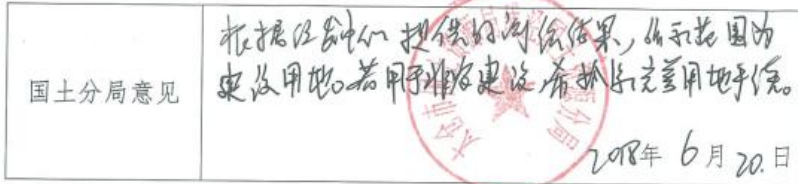 国土分局意见
根据经发中心提供的测绘结果，所示范围为
建设用地。若用于非农建设，需抓紧完善用地手续。
2018年6月20日